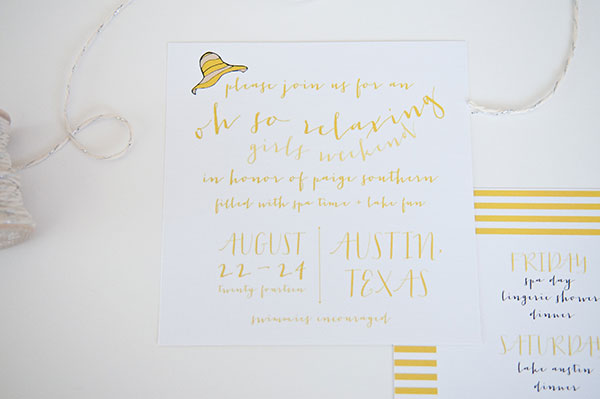 please join us for an
oh so relaxing
girls weekend
in honor of paige southern
filled with spa time + lake fun
AUGUST
22-24
twenty fourteen
AUSTIN,
TEXAS
swimmies encouraged
FRIDAY
spa day
lingerie shower
dinner
SATURDAY
lake austin
dinner